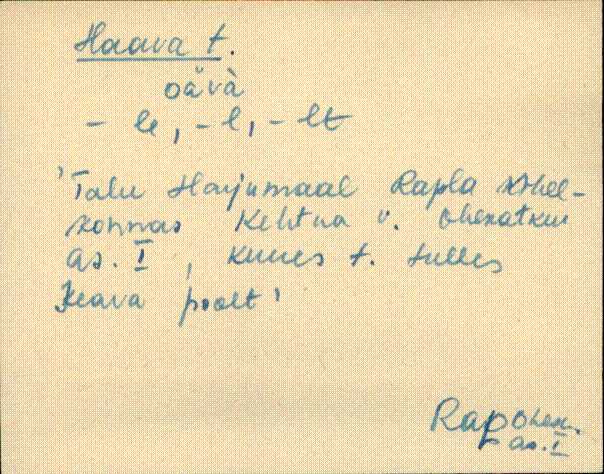 Haava t.
oăvà
- le, - l, - lt
'Talu Harjumaal Rapla kihel-
konnas Kehtna v. Ohekatku
as. I, kuues t. tulles
Keava poolt'
Rap Ohek.
as. I